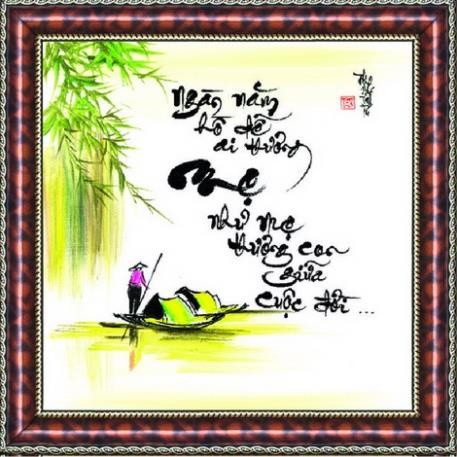 ngàn năm
hồ dễ
ai thương
Mẹ
như mẹ
thương con
giữa
cuộc đời ...